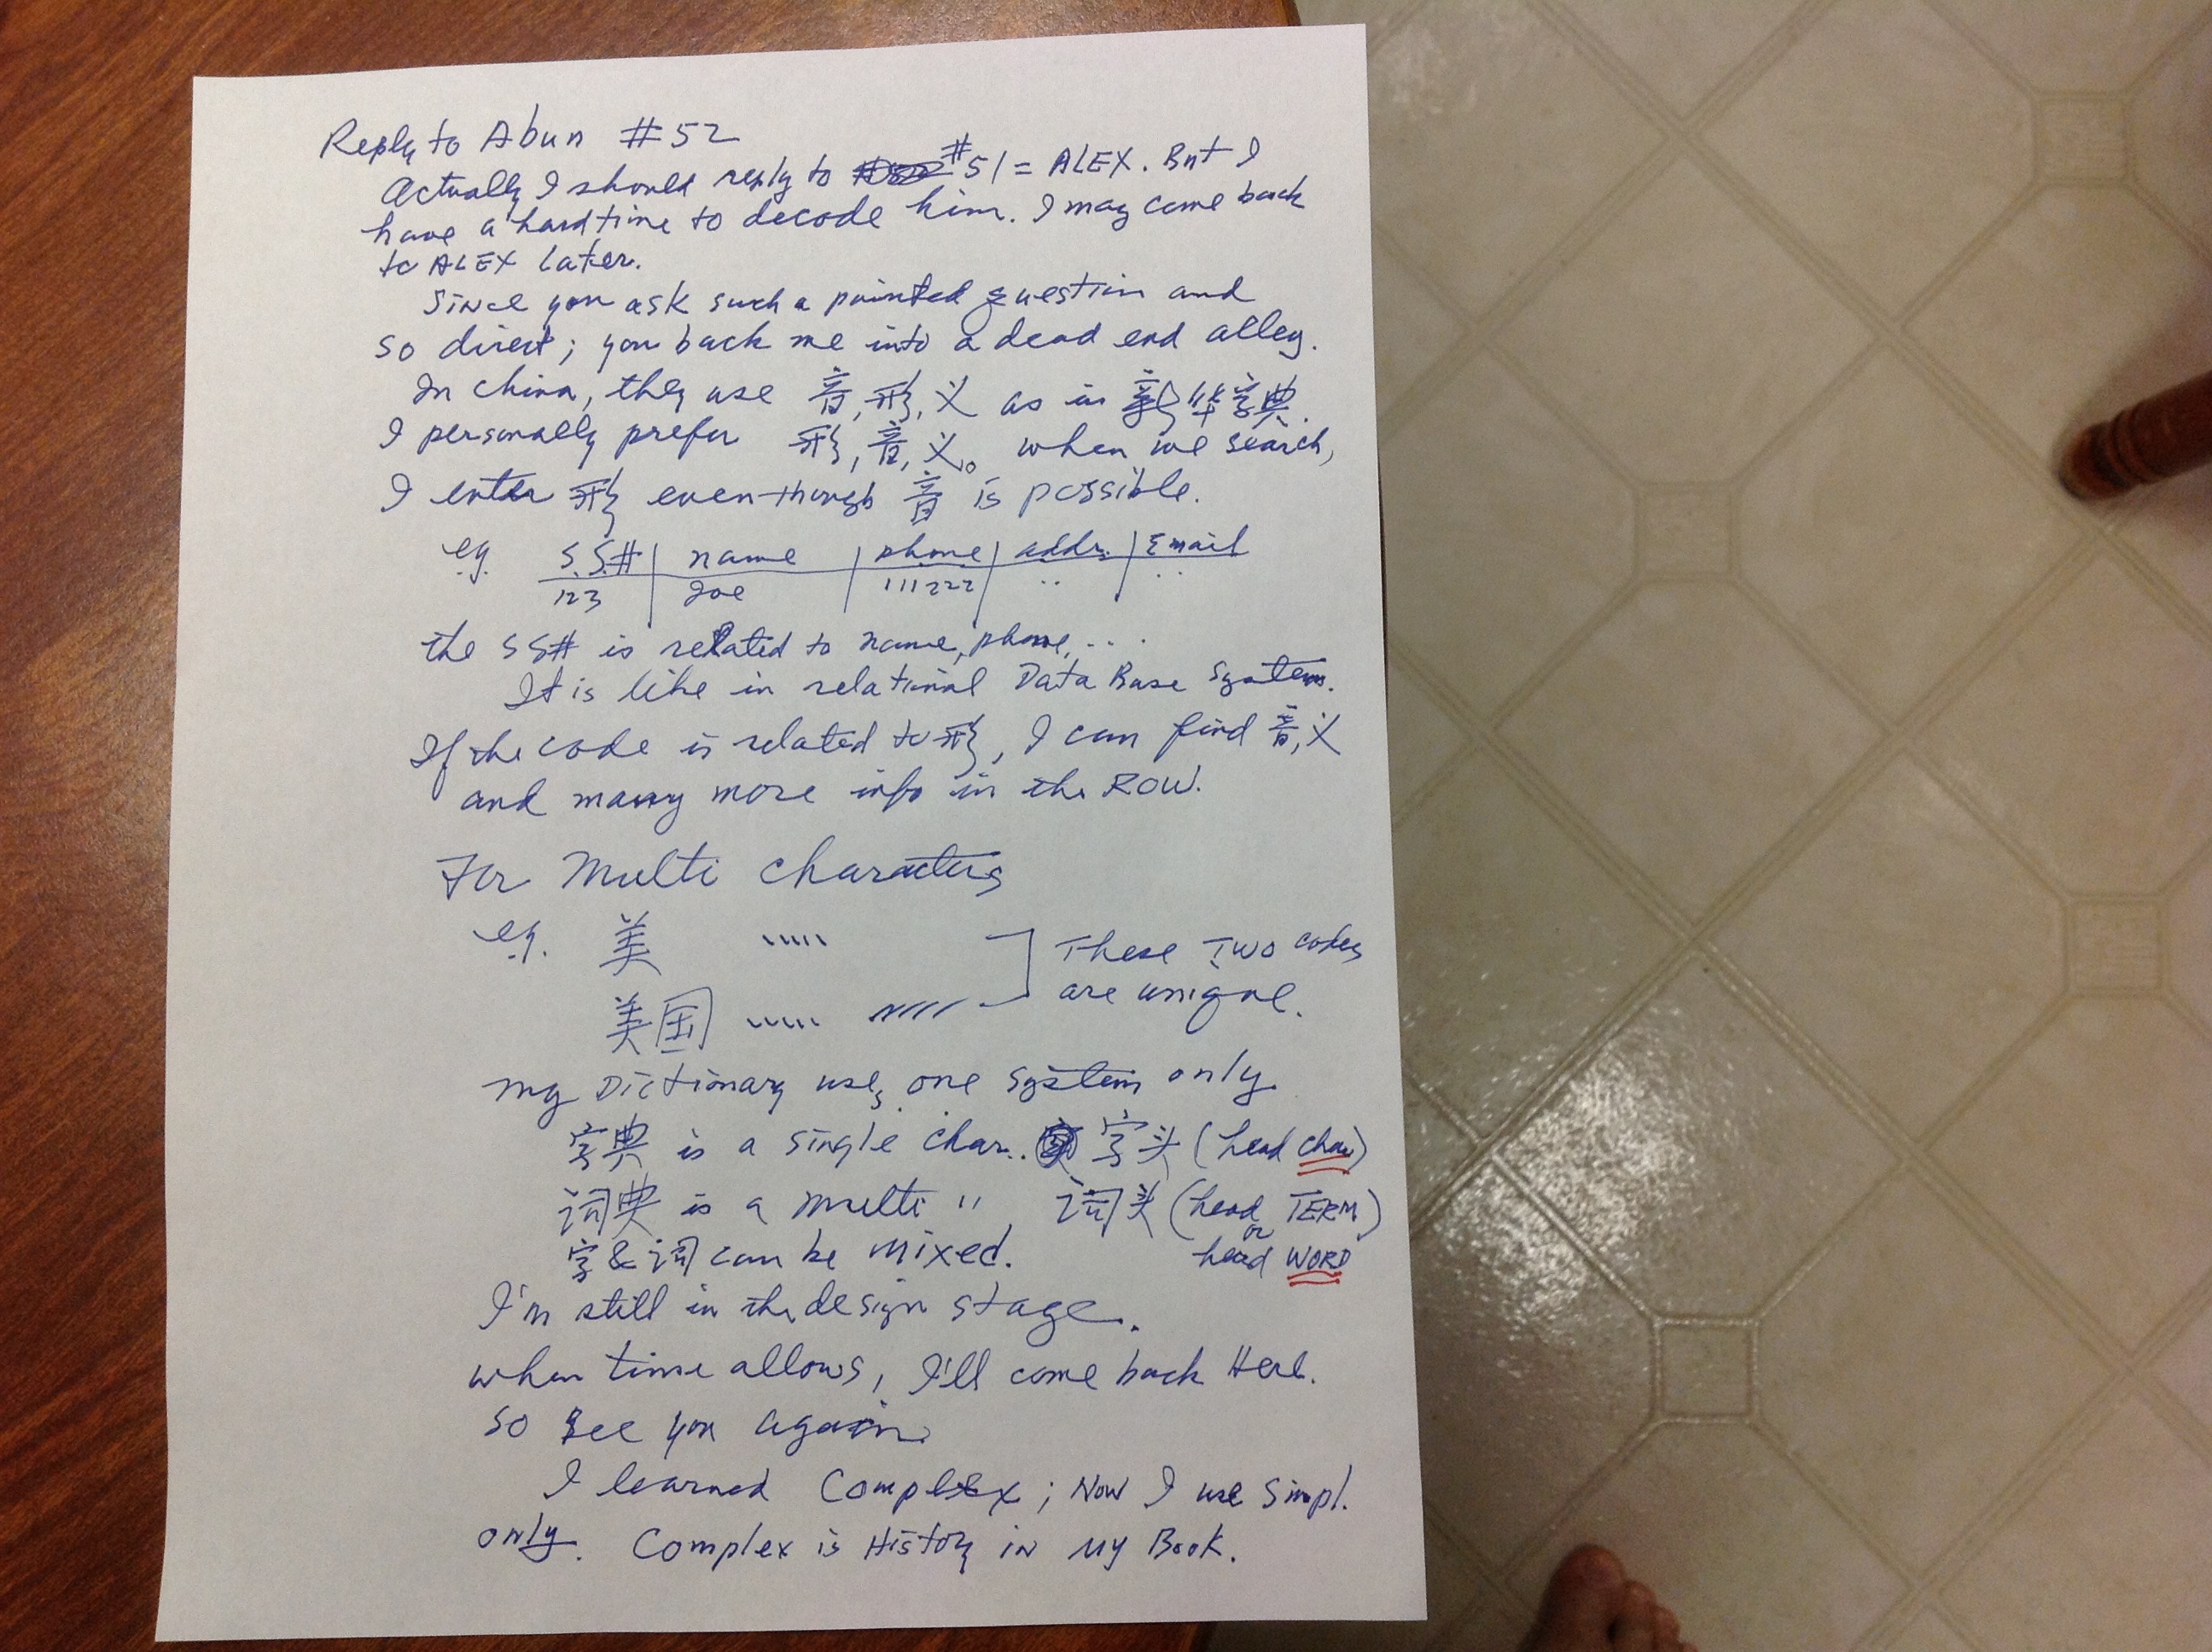 Reply to Abun #52
Actually I should reply to #51 = ALEX. But I
have a hard time to decode him. I may come back
to ALEX Later.
Since you ask such a pointed question and
so direct; you back me into a dead end alley.
In China, they use 音,形,义 as in 新华字典.
I personally prefer 形,音,义。 when we search,
I enter 形 even-though 音 is possible.
e.g. S.S.# | name | phone | addr. | Email
123 | Joe | 111222 | .. | ..
the SS# is related to name, phone, ...
It is like in relational Data Base System.
If the code is related to 形, I can find 音,义
and many more info in the ROW.
For Multi Characters
e.g. 美 ..... These Two codes
美国 ..... ///// are unique.
my Dictionary uses one system only
字典 is a single char.. 字头 (head char)
词典 is a multi " 词头 (head TERM)
or
字 & 词 can be mixed. head WORD
I'm still in the design stage.
when time allows, I'll come back Here.
so see you again.
I learned Complex; Now I use simpl.
only. Complex is History in My Book.